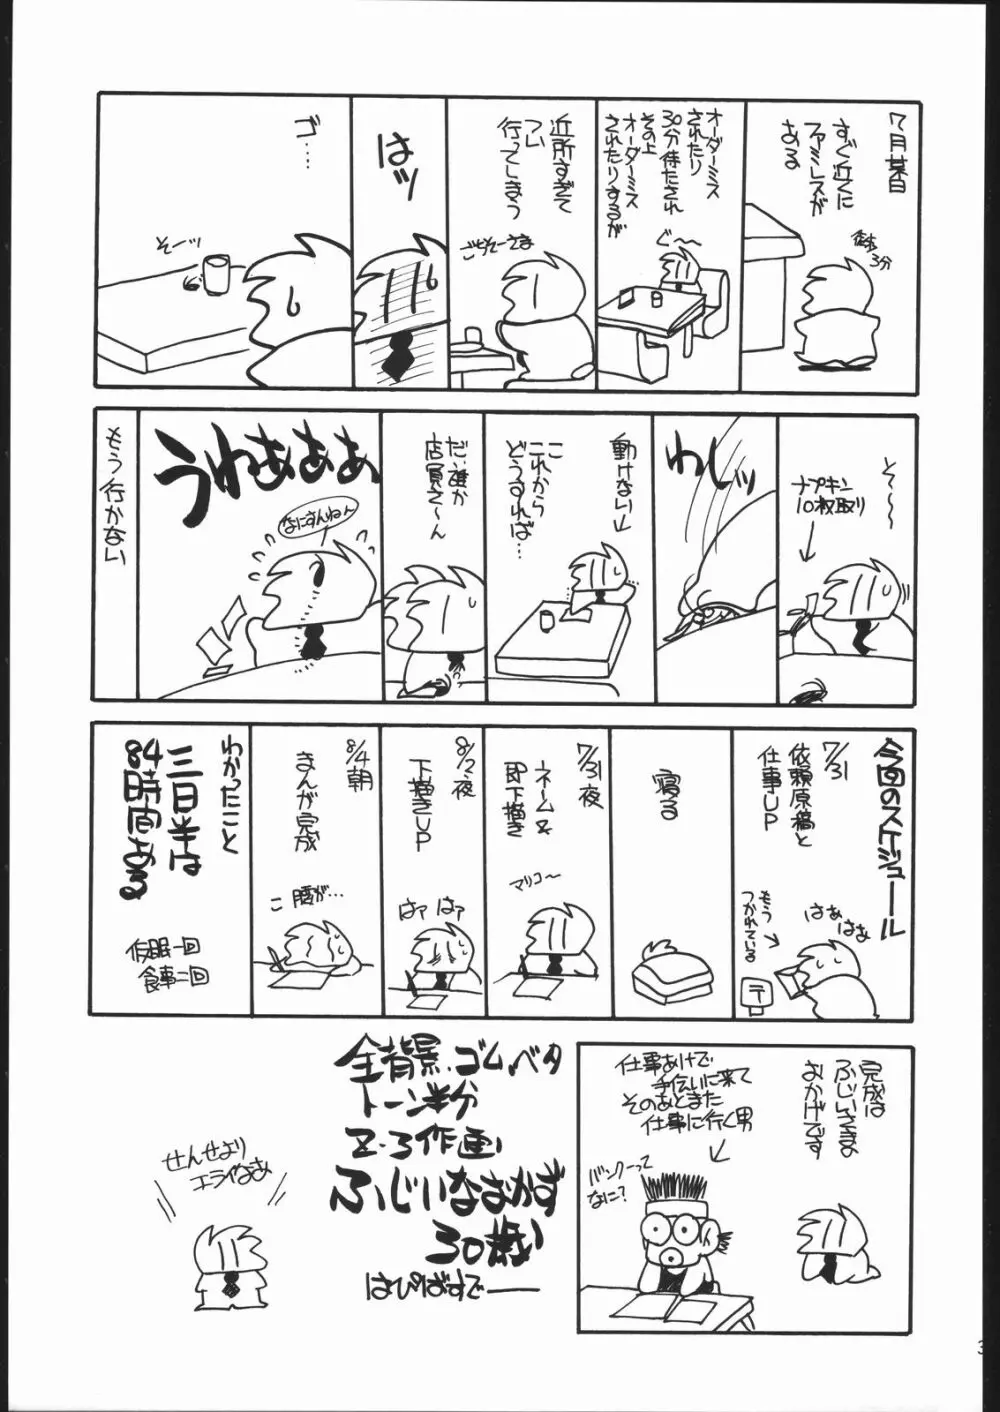 7月某日
すぐ近くに
ファミレスが
ある
徒歩
3分
オーダーミス
されたり
30分待たされ
その上
オーダーミス
されたりするが
ぐ〜〜
近所すぎて
つい
行ってしまう
ごちそーさま
はッ
ゴ……
そーッ
そ〜〜
ナプキン
10枚取り
わしッ
動けない
これから
どうすれば…
だ、誰か
店員さ〜ん
うわあああ
なにすんねん
もう行かない
今回のスケジュール
7/31
依頼原稿と
仕事UP
はぁ
はぁ
もう
つかれている
〒
寝る
7/31夜
ネーム&
即下描き
マリコ〜
8/2夜
下描きUP
はァ はァ
8/4朝
まんが完成
こ 腰が…
わかったこと
三日半は
84時間ある
仮眠一回
食事二回
完成は
ふじいさま
おかげです
仕事あけで
手伝いに来て
そのあとまた
仕事に行く男
バンクーって
なに?
全背景、ゴム、ベタ
トーン半分
Z・3作画
ふじいなおかず
30歳
はぴばすでー
せんせより
エライなあ
3